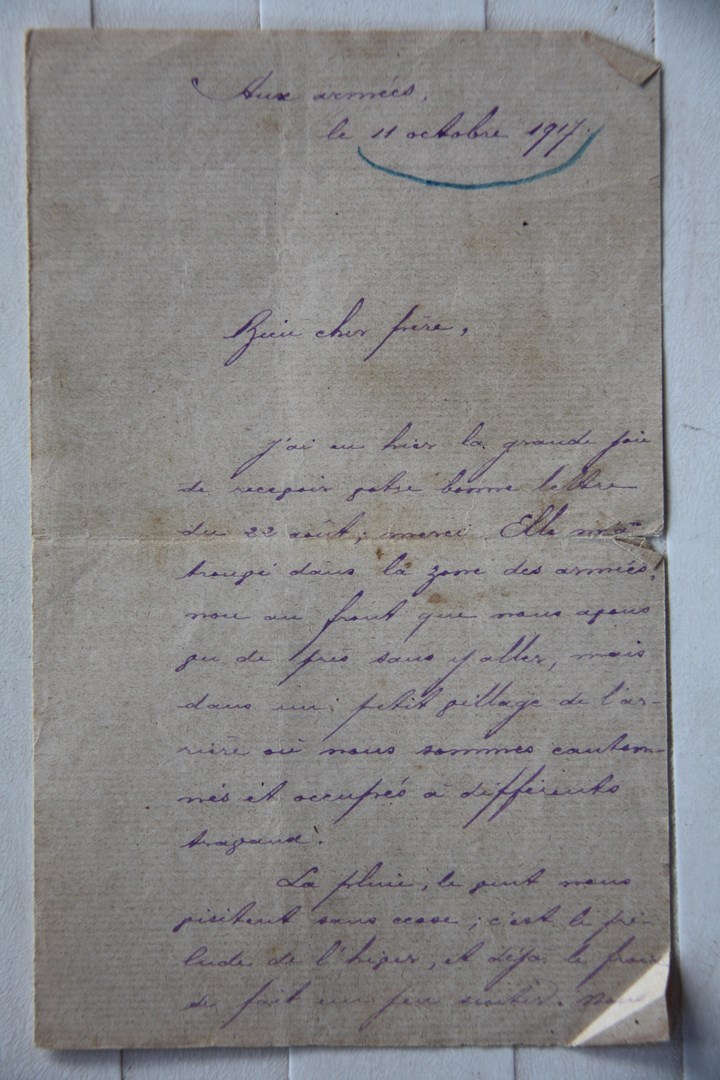 Aux armées,
le 11 octobre 1917.
Bien cher frère,
J'ai eu hier la grande joie
de recevoir votre bonne lettre
du 22 août; merci. Elle m'a
trouvé dans la zone des armées,
non au front que nous avons
vu de près sans y aller, mais
dans un petit village de l'ar-
rière où nous sommes canton-
nés et occupés à différents
travaux.
La pluie, le vent nous
visitent sans cesse; c'est le pré-
lude de l'hiver, et déjà le froid
se fait un peu sentir. Nous